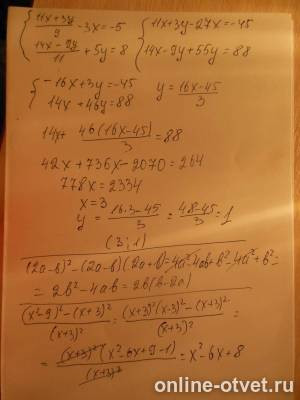 { (11x+3y)/9 - 3x = -5    { 11x+3y-27x = -45
{ (14x-9y)/11 + 5y = 8    { 14x-9y+55y = 88
{ -16x+3y = -45    y = (16x-45)/3
{ 14x + 46y = 88
14x + 46(16x-45)/3 = 88
42x + 736x - 2070 = 264
778x = 2334
x = 3
y = (16·3-45)/3 = (48-45)/3 = 1
(3; 1)
(2a-b)² - (2a-b)(2a+b) = 4a²-4ab+b²-4a²+b² =
= 2b²-4ab = 2b(b-2a)
((x²-9)² - (x+3)²)/(x+3)² = ((x+3)²(x-3)² - (x+3)²)/(x+3)² =
= ((x+3)²(x²-6x+9-1))/(x+3)² = x²-6x+8
online-otvet.ru